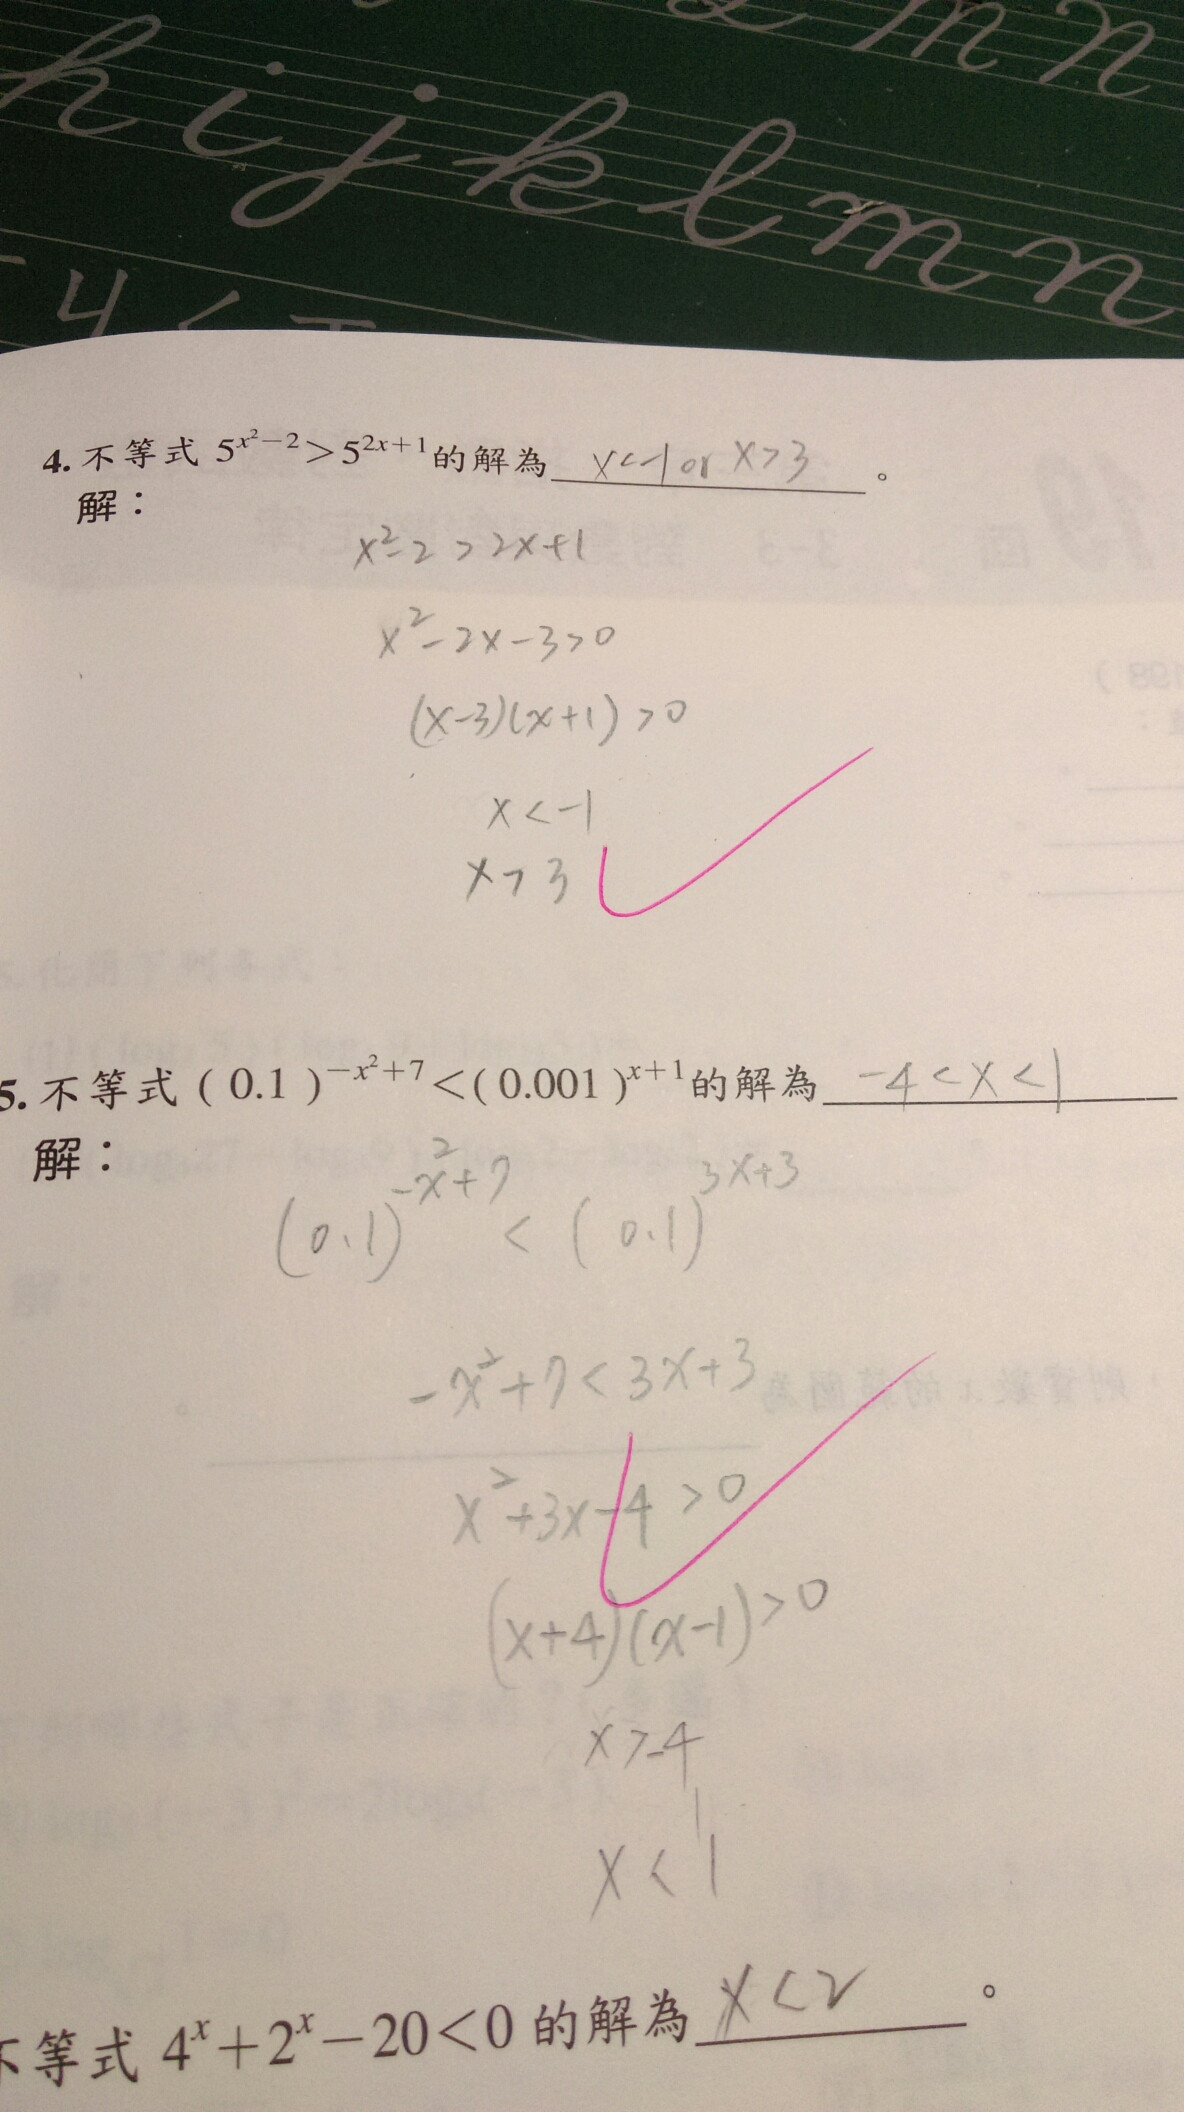 m n
h i j k l m n
4. 不等式 5^{x²−2}>5^{2x+1}的解為 x<-1 or x>3 。
解：
x²-2 > 2x+1
x²-2x-3>0
(x-3)(x+1)>0
x<-1
x>3
5. 不等式 ( 0.1 )^{−x²+7}<( 0.001 )^{x+1}的解為 -4<x<1
解：
(0.1)^{-x²+7} < (0.1)^{3x+3}
-x²+7<3x+3
x²+3x-4>0
(x+4)(x-1)>0
x>-4
x<1
不等式 4^x+2^x−20<0 的解為 x<2 。